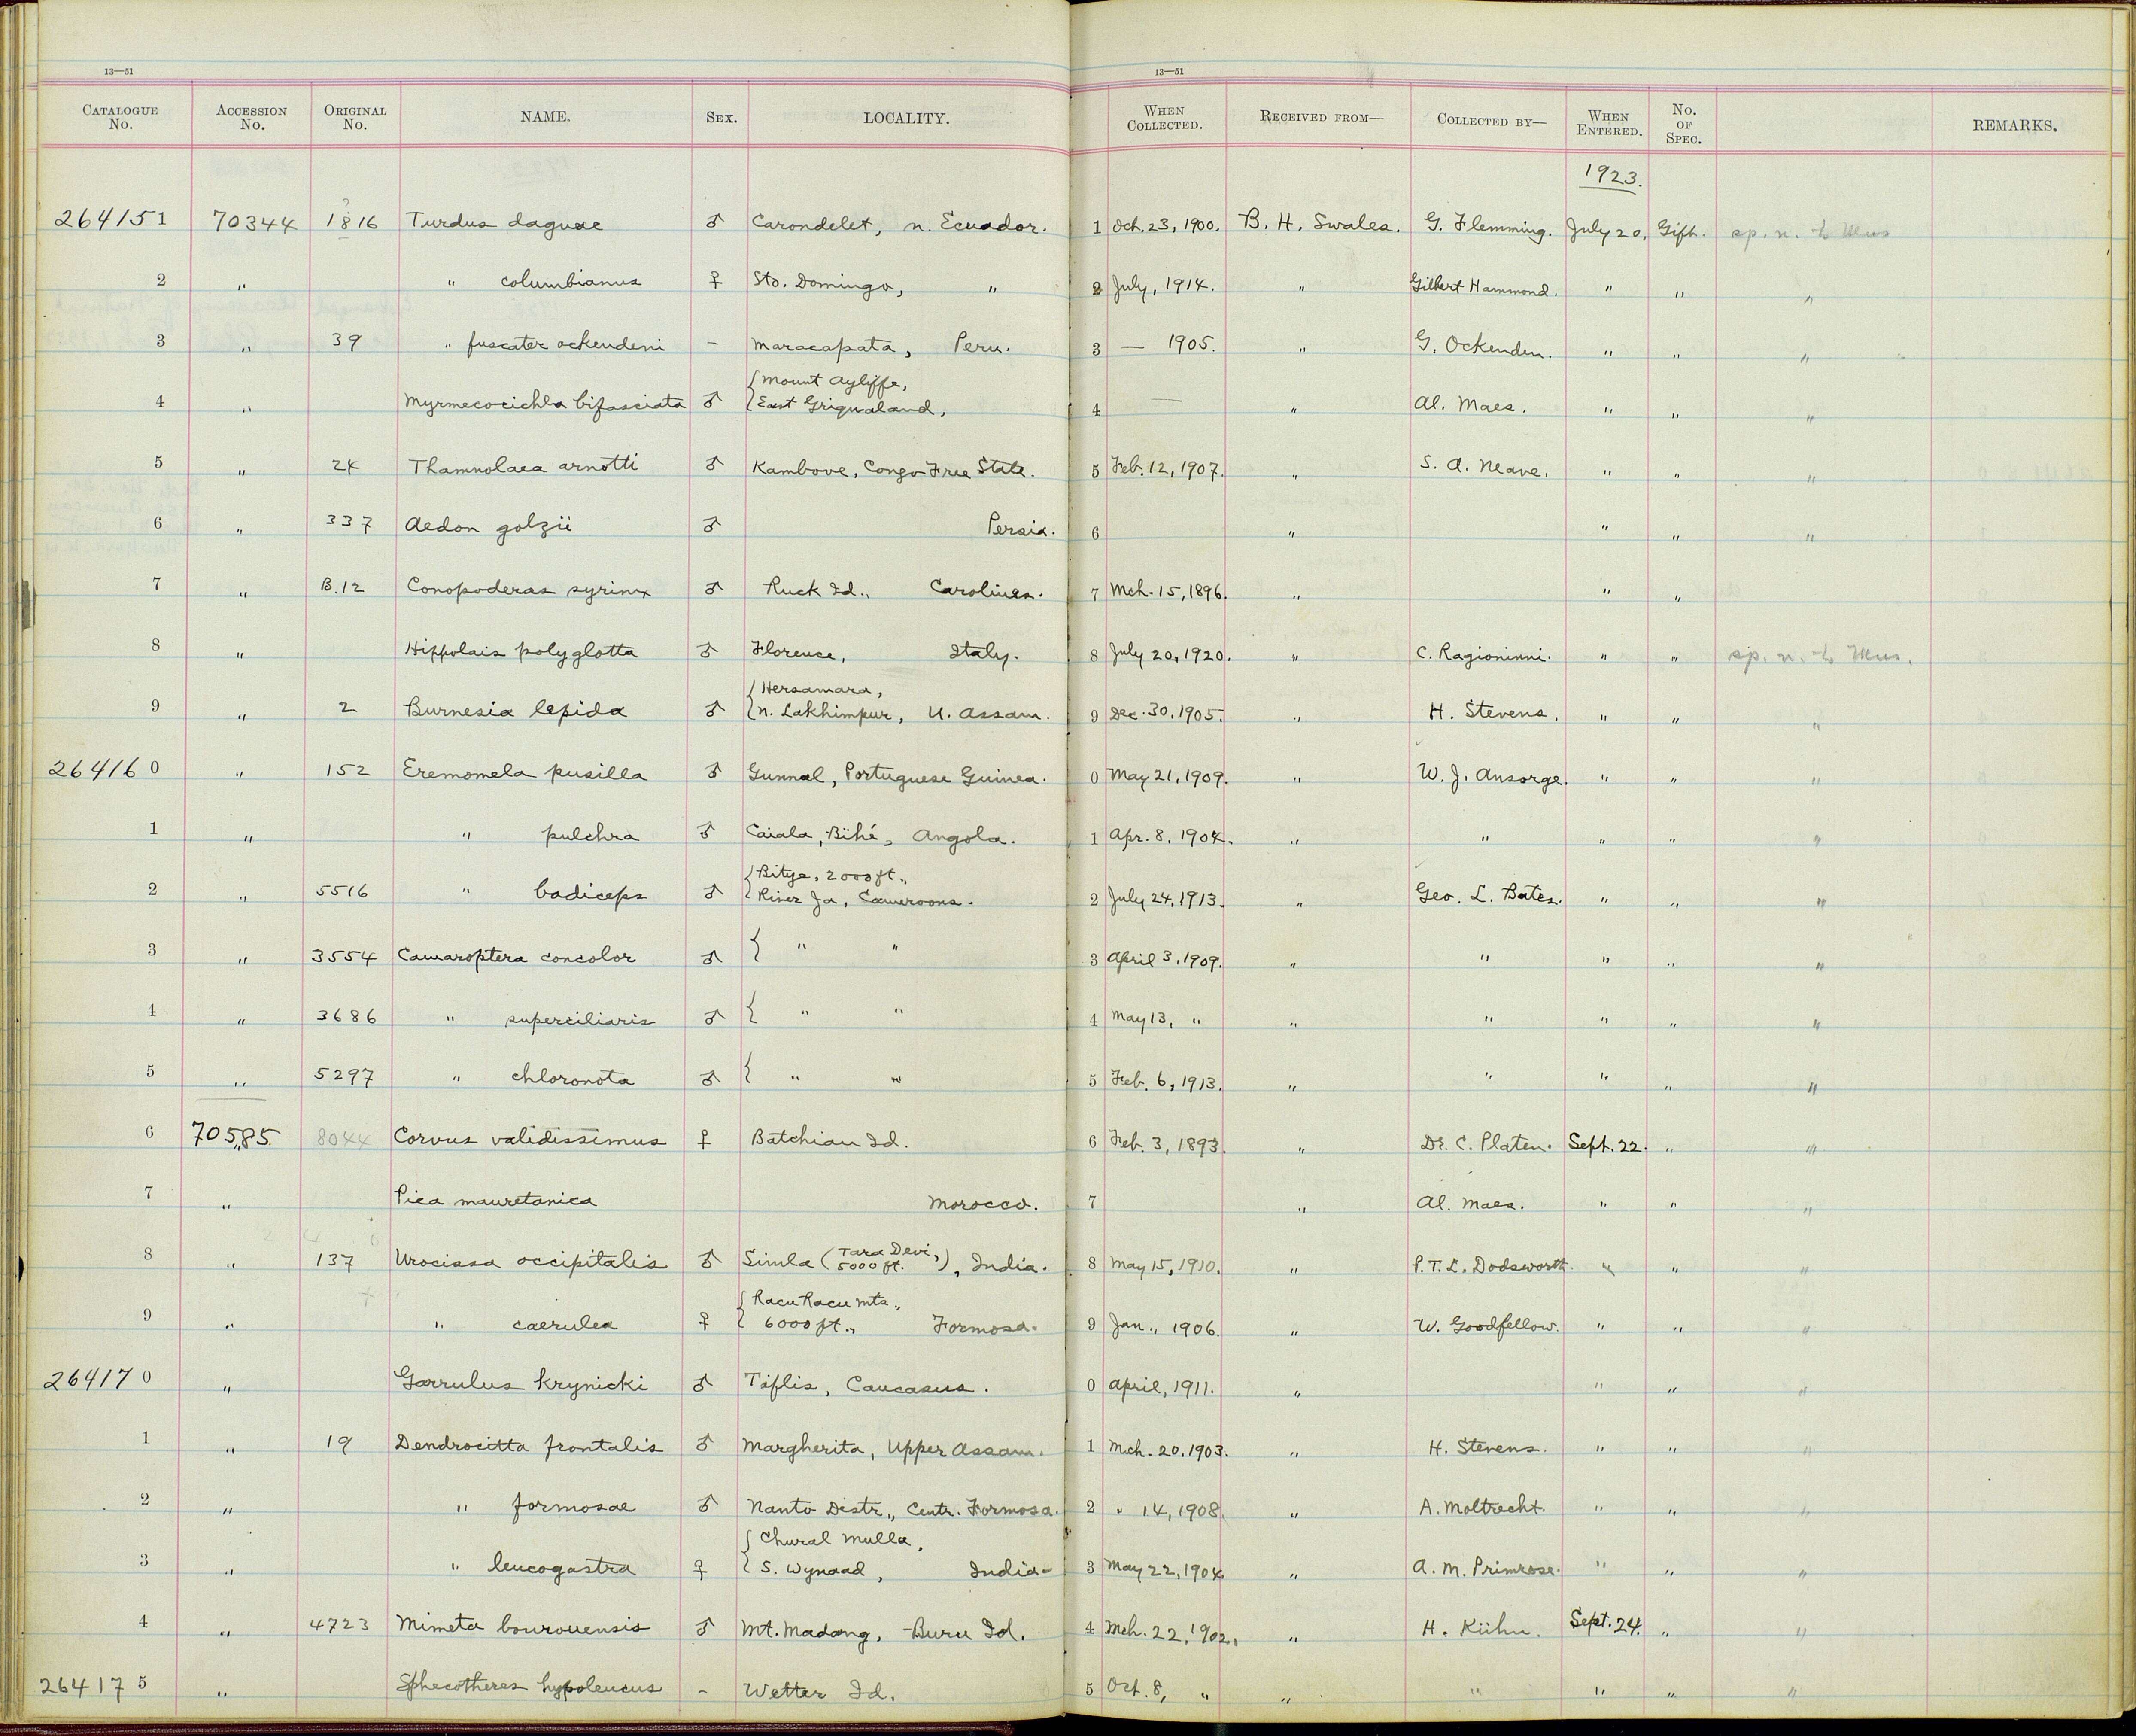 13—51 13—51
CATALOGUE No. ACCESSION No. ORIGINAL No. NAME. SEX. LOCALITY. WHEN COLLECTED. RECEIVED FROM— COLLECTED BY— WHEN ENTERED. No. OF SPEC. REMARKS.
1923.
264151 70344 1816 Turdus daguae ♂ Carondelet, n. Ecuador. 1 Oct. 23, 1900. B. H. Swales. G. Flemming. July 20, Gift. sp. n. to Mus
2 " " columbianus ♀ Sto. Domingo, " 2 July, 1914. " Gilbert Hammond. " " "
3 " 39 " fuscater ockendeni – Maracapata, Peru. 3 — 1905. " G. Ockenden. " " "
4 " Myrmecocichla bifasciata ♂ { Mount Ayliffe, East Griqualand, 4 — " Al. Maes. " " "
5 " 24 Thamnolaea arnotti ♂ Kambove, Congo Free State. 5 Feb. 12, 1907. " S. A. Neave. " " "
6 " 337 Aedon golzii ♂ Persia. 6 " " " "
7 " B.12 Conopoderas syrinx ♂ Ruck Id., Carolines. 7 Mch. 15, 1896. " " "
8 " Hippolais polyglotta ♂ Florence, Italy. 8 July 20, 1920. " C. Ragioninni. " " sp. n. to Mus.
9 " 2 Burnesia lepida ♂ { Hersamara, n. Lakhimpur, U. Assam. 9 Dec. 30, 1905. " H. Stevens. " " "
264160 " 152 Eremomela pusilla ♂ Gunnal, Portuguese Guinea. 0 May 21, 1909. " W. J. Ansorge. " " "
1 " " pulchra ♂ Caiala, Bihé, Angola. 1 Apr. 8, 1904. " " " " "
2 " 5516 " badiceps ♂ { Bitye, 2000 ft., River Ja, Cameroons. 2 July 24, 1913. " Geo. L. Bates. " " "
3 " 3554 Camaroptera concolor ♂ { " " 3 April 3, 1909. " " " " "
4 " 3686 " superciliaris ♂ { " " 4 May 13, " " " " " "
5 " 5297 " chloronota ♂ { " " 5 Feb. 6, 1913. " " " " "
6 70585 8044 Corvus validissimus ♀ Batchian Id. 6 Feb. 3, 1893. " Dr. C. Platen. Sept. 22. " "
7 " Pica mauretanica Morocco. 7 " Al. Maes. " " "
8 " 137 Urocissa occipitalis ♂ Simla (Tara Devi, 5000 ft.), India. 8 May 15, 1910. " P. T. L. Dodsworth. " " "
9 " " caerulea ♀ { Racu Racu Mts., 6000 ft., Formosa. 9 Jan., 1906. " W. Goodfellow. " " "
264170 " Garrulus krynicki ♂ Tiflis, Caucasus. 0 April, 1911. " " " "
1 " 19 Dendrocitta frontalis ♂ Margherita, Upper Assam. 1 Mch. 20, 1903. " H. Stevens. " " "
2 " " formosae ♂ Nanto Distr., Centr. Formosa. 2 " 14, 1908. " A. Moltrecht. " " "
3 " " leucogastra ♀ { Chural Mulla, S. Wynaad, India. 3 May 22, 1904 " A. M. Primrose. " " "
4 " 4723 Mimeta bourouensis ♂ Mt. Madang, Buru Id. 4 Mch. 22, 1902. " H. Kühn. Sept. 24. " "
264175 " Sphecotheres hypoleucus – Wetter Id. 5 Oct. 8, " " " " " "